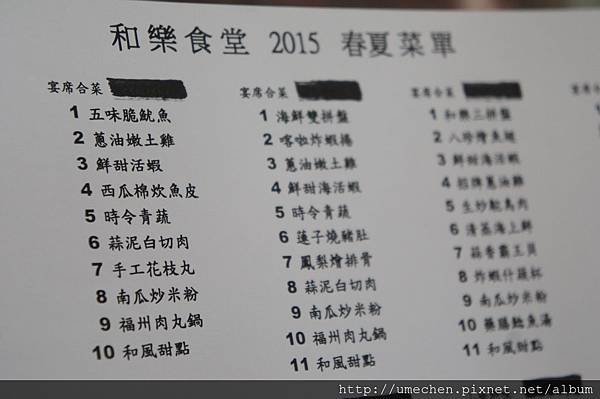 和樂食堂 2015 春夏菜單
宴席合菜
1 五味脆魷魚
2 蔥油嫩土雞
3 鮮甜活蝦
4 西瓜棉炊魚皮
5 時令青蔬
6 蒜泥白切肉
7 手工花枝丸
8 南瓜炒米粉
9 福州肉丸鍋
10 和風甜點
宴席合菜
1 海鮮雙拼盤
2 喀啦炸蝦捲
3 蔥油嫩土雞
4 鮮甜海活蝦
5 時令青蔬
6 蓮子燒豬肚
7 鳳梨燴排骨
8 蒜泥白切肉
9 南瓜炒米粉
10 福州肉丸鍋
11 和風甜點
宴席合菜
1 和樂三拼盤
2 八珍燴魚翅
3 鮮甜海活蝦
4 招牌蔥油雞
5 生炒鴕鳥肉
6 清蒸海上鮮
7 蒜香霸王貝
8 炸蝦什蔬杯
9 南瓜炒米粉
10 藥膳鱸魚湯
11 和風甜點
http://umechen.pixnet.net/album